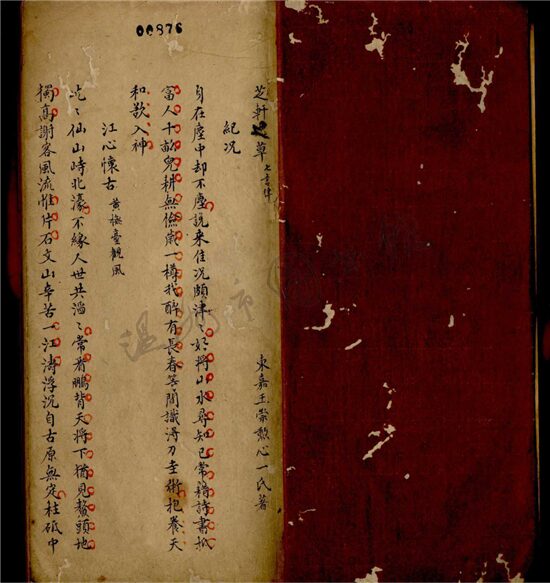 00876
芝軒草 七言律
東嘉王崇勲心一氏著
紀况
身在塵中却不塵說来佳况頗津〻好將山水尋知己常籍詩書抵
富人十畝兒耕無儉嵗一樽我醉有長春等閒識得刀圭術抱養天
和歘入神
江心懷古 黄檢臺觀風
屹〻仙山峙北濠不緣人世共滔〻常看鵬背天將下猶見鰲頭地
獨髙謝客風流惟片石文山辛苦一江濤浮沉自古原無定柱砥中